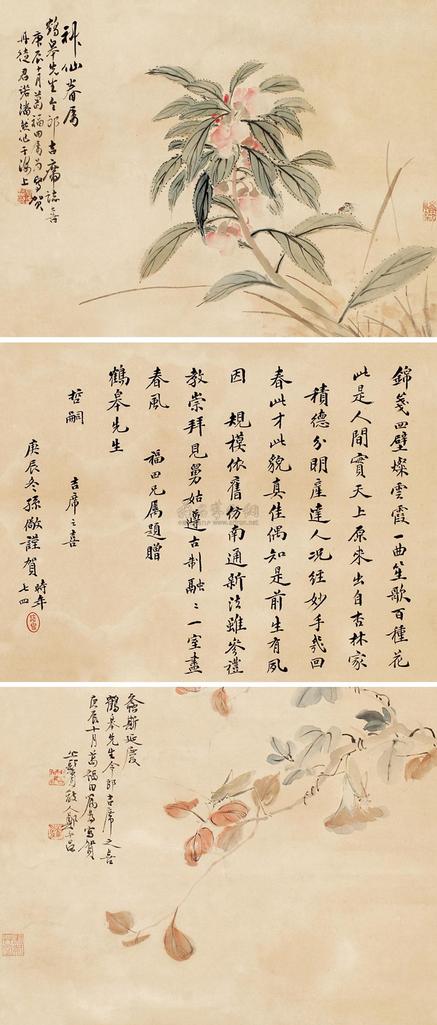 神仙眷属
鶴皋先生令郎吉席誌喜
庚辰十月葛福田属为写賀
丹徒君诺潘然作于海上
錦箋四壁燦雲霞一曲笙歌百種花
此是人間實天上原來出自杏林家
積德分明產達人况經妙手幾回
春此才此貌真佳偶知是前生有夙
因 規模依舊仿南通新法雖參禮
教崇拜見舅姑遵古制融〻一室盡
春風 福田兄属題贈
鶴皋先生
哲嗣 吉席之喜
庚辰冬孫儆謹賀 時年
七四
螽斯延慶
鶴皋先生令郎吉席之喜
庚辰十月葛福田属写賀